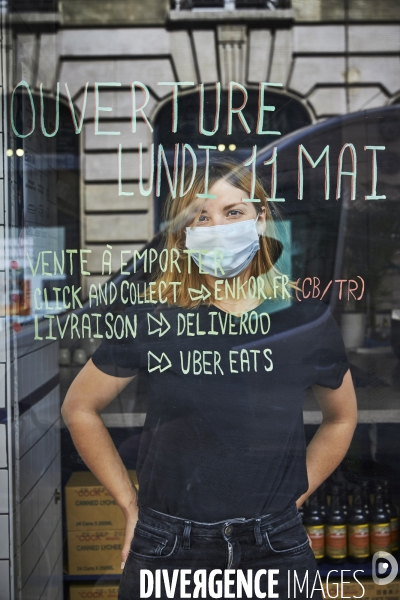 OUVERTURE
LUNDI 11 MAI
VENTE À EMPORTER
CLICK AND COLLECT ENKOR.FR (CB/TR)
LIVRAISON DELIVEROO
UBER EATS
DIVERGENCE IMAGES